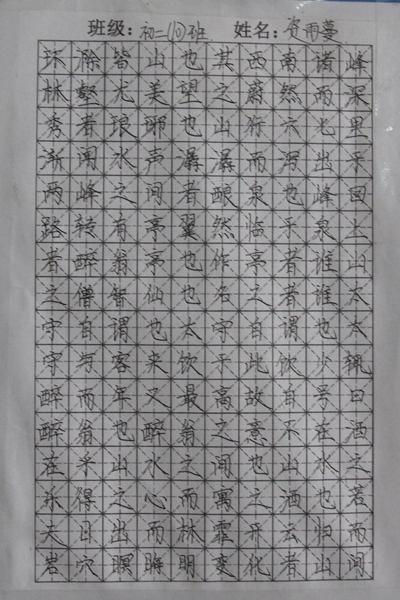 班级：初二(10)班 姓名：资雨蔓
环滁皆山也其西南诸峰
林壑尤美望之蔚然而深
秀者琅琊也山行六七里
渐闻水声潺潺而泻出乎
两峰之间者酿泉也峰回
路转有亭翼然临于泉上
者醉翁亭也作亭者谁山
之僧智仙也名之者谁太
守自谓也太守自谓也太
守与客来饮于此饮少辄
醉而年又最高故自号曰
醉翁也醉翁之意不在酒
在乎山水之间也山水之
乐得之心而寓之酒也若
夫日出而林霏开云归而
岩穴暝晦明变化者山间